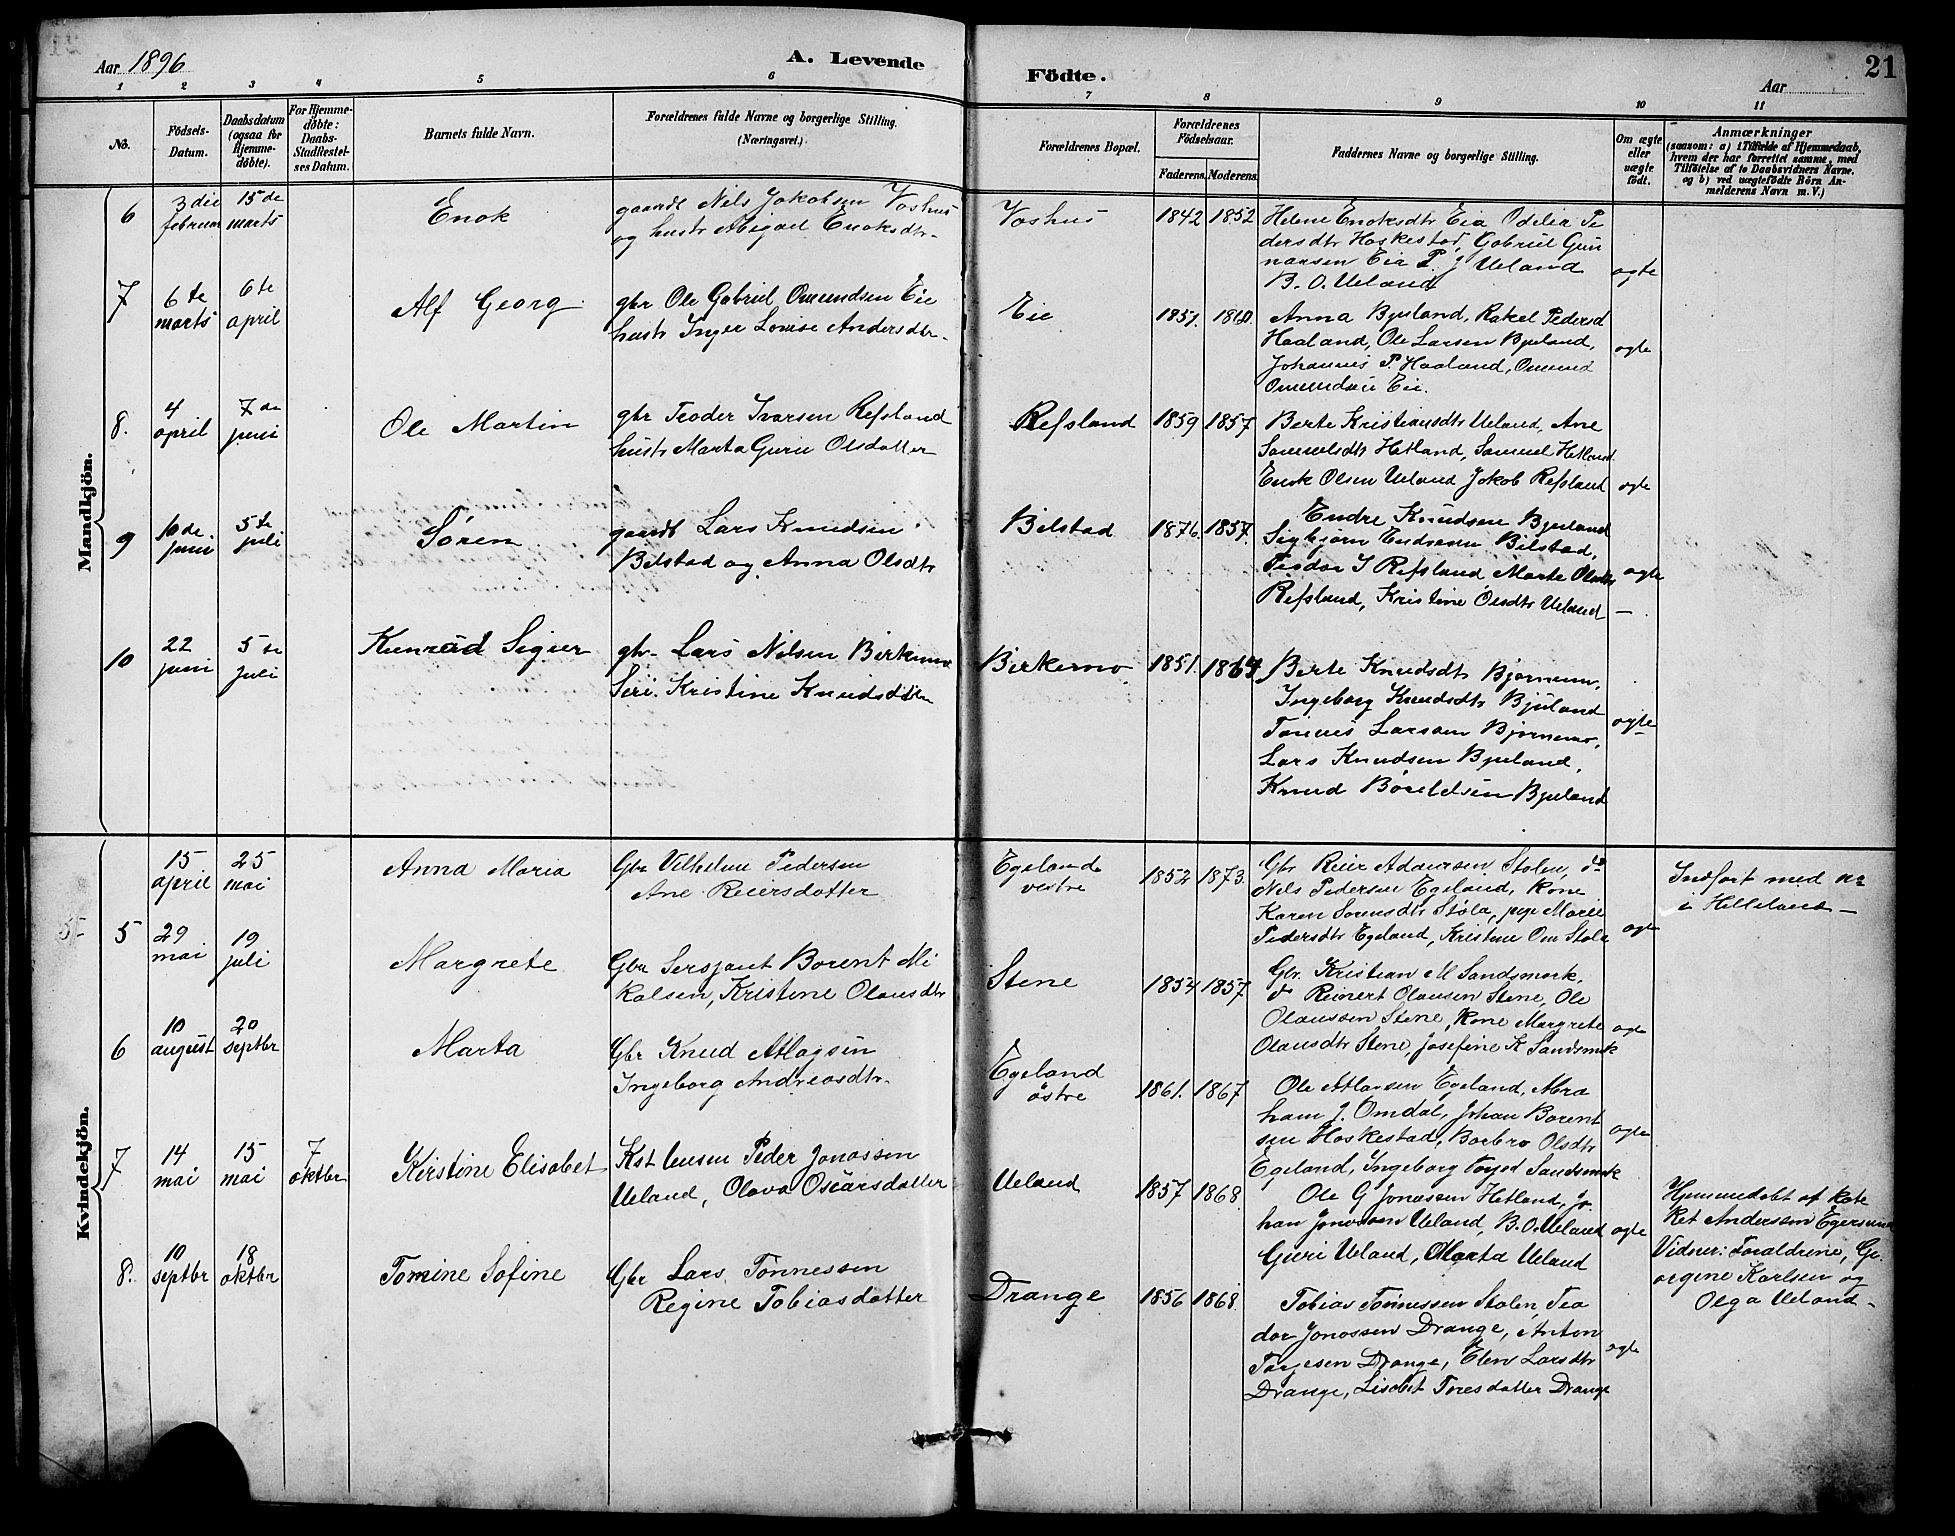 Aar 1896
A. Levende
Födte.
Aar
21
1 2 3 4 5 6 7 8 9 10 11
No.
Födsels-Datum.
Daabsdatum (ogsaa for Hjemme-döbte).
For Hjemme-döbte: Daabs-Stadfæstelses Datum.
Barnets fulde Navn.
Forældrenes fulde Navne og borgerlige Stilling.
(Næringsvei.)
Forældrenes Bopæl.
Forældrenes Födselsaar.
Faderens. Moderens.
Faddernes Navne og borgerlige Stilling.
Om ægte eller uægte födt.
Anmærkninger
(saasom: a) i Tilfælde af Hjemmedaab, hvem der har forrettet samme, med Tilföielse af to Daabsvidners Navne, og b) ved uægtefödte Börn Anmelderens Navn m. V.)
Mandkjön.
6 3die februar 15de marts Enok gaardb Nils Jakobsen Voshus
og hustr Abigael Enoksdtr. Voshus 1842 1852
Helene Enoksdtr Eia Odilia Pe
dersdtr Hoskestad, Gabriel Gun
narsen Eia P. J Ueland
B. O. Ueland ægte
7 6te marts 6te april Alf Georg gbr Ole Gabriel Omundsen Eie
hustr Inger Lovise Andersdtr. Eie 1851. 1860.
Anna Bjuland, Rakel Pedersd
Haaland, Ole Larsen Bjuland,
Johannes P. Haaland, Omund
Omundsen Eie. ægte
8. 4 april 7de juni Ole Martin gbr Teoder Ivarsen Refsland
hustr Marta Gurie Olsdatter Refsland 1859 1857
Berte Kristiansdtr Ueland, Ane
Samuelsdtr Hetland, Samuel Hetland
Enok Olsen Ueland Jakob Refsland ægte
9 10de juni 5te juli Søren gaardb Lars Knudsen
Bilstad og Anna Olsdtr Bilstad 1876. 1857.
Endre Knudsen Bjuland
Sigbjørn Endresen Bilstad,
Teodor I Refsland Marte Olsdtr
Refsland, Kristine Olsdtr Ueland ægte
10 22 juni 5te juli Kunrad Sigier gbr Lars Nilsen Birkemo
Seri. Kristine Knudsdtter Birkemo 1851. 1864
Berte Knudsdtr Bjørnemo,
Ingeborg Knudsdtr Bjuland
Tønnes Larssen Bjørnemo,
Lars Knudsen Bjuland,
Knud Böieldsen Bjuland ægte
Kvindekjön.
15 april 25 mai Anna Maria Gbr Vilhelm Pedersen
Ane Reiersdatter Egeland vestre 1852 1873.
Gbr Reier Adamsen Stolen, do
Nils Pedersen Egeland, Kone
Karen Sørensdtr Støla, pige Marie
Pedersdtr Egeland, Kristine Om Støla ægte
Indført med nr
i Helleland
5 29 mai 19 juli Margrete Gbr Sersjant Borent Mi
kalsen, Kristine Olausdtr Stene 1854 1857
Gbr. Kristian M Sandsmark,
do Reinert Olaussen Stene, Ole
Olaussen Stene, Kone Margrete
Olausdtr Stene, Josefine K Sandsmrk ægte
6 10 august 20 septbr Marta Gbr Knud Atlagsen
Ingeborg Andreasdtr. Egeland østre 1861. 1867
Ole Atlaksen Egeland, Abra
ham J. Omdal, Johan Borent
sen Hoskestad, Borbro Olsdtr
Egeland, Ingeborg Sandsmrk ægte
7 14 mai 15 mai 7 oktbr Kirstine Elisabet Peder Jonassen
Ueland, Olava Oscarsdatter Ueland 1857 1868.
Ole G Jonassen Hetland, Jo
han Jonassen Ueland, B. O. Ueland
Guri Ueland, Marta Ueland ægte
Hjemmedøbt af Kate
ket Andersen Egersund
Vidner: Forældrene, Ge
orgine Karlsen og
Olga Ueland.
8. 10 septbr 18 oktbr Tomine Sofine Gbr Lars Tønnessen
Regine Tobiasdatter Drange 1856 1868.
Tobias Tønnessen Stolen, Teo
dor Jonassen Drange, Anton
Tarjesen Drange, Elen Larsdtr
Drange, Lisabet Toresdatter Drange ægte